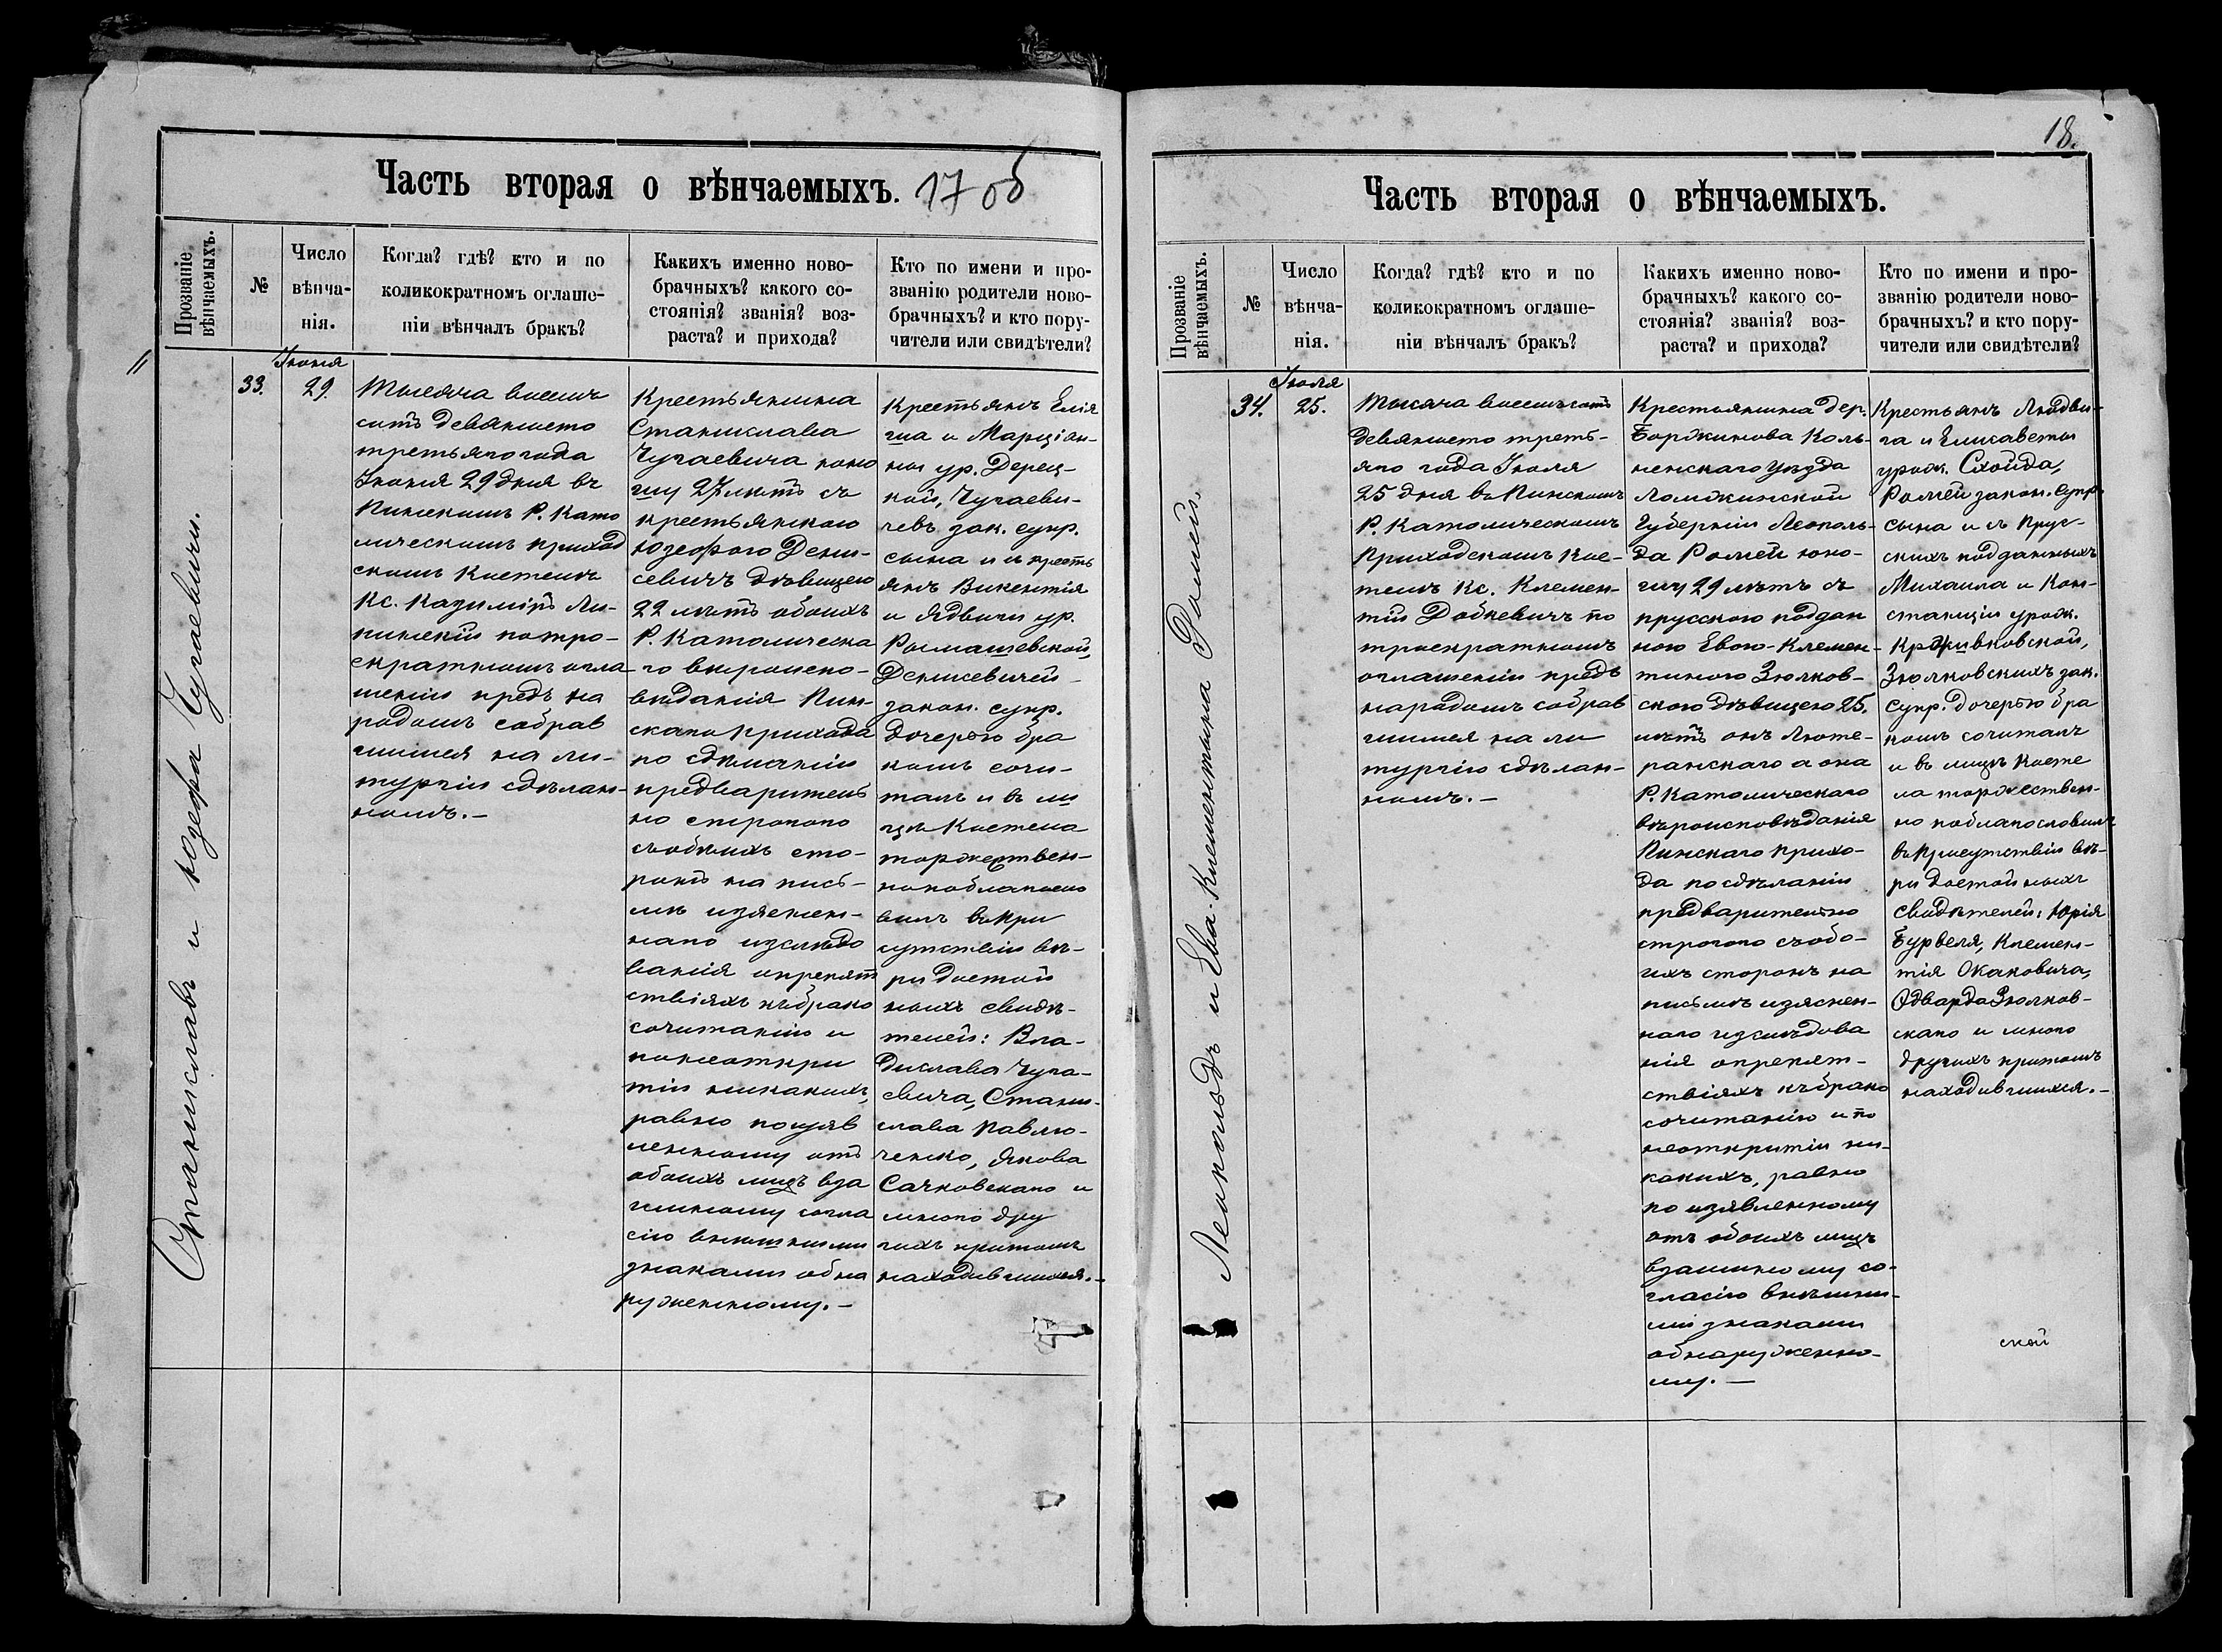 Часть вторая о вѣнчаемыхъ. 17 об
Прозваніе вѣнчаемыхъ.
№
Число
вѣнча-
нія.
Когда? гдѣ? кто и по
коликократномъ оглаше-
ніи вѣнчалъ бракъ?
Какихъ именно ново-
брачныхъ? какого со-
стоянія? званія? воз-
раста? и прихода?
Кто по имени и про-
званію родители ново-
брачныхъ? и кто пору-
чители или свидѣтели?
Станиславъ и Юзефа Чугаевичи.
33.
Іюня
29.
Тысяча восемь
сотъ девяносто
третьяго года
Іюня 29 дня въ
Пинскомъ Р. Като
лическомъ приход
скомъ Костелѣ
Кс. Казиміръ Ли-
пинскій по тро-
екратномъ огла
шеніи предъ на
родомъ собрав
шимся на ли-
тургіи сдѣлан-
номъ.—
Крестьянина
Станислава
Чугаевича юно
шу 27 лѣтъ съ
крестьянкою
Юзефою Дени-
севичъ дѣвицею
22 лѣтъ обоихъ
Р. Католическа
го вѣроиспо-
вѣданія Пин-
скаго прихода
по сдѣланіи
предваритель
но строгого
съ обѣихъ сто-
ронъ на пись-
мѣ изяснен-
наго изслѣдо
ванія о препят
ствіяхъ къ брако
сочитанію и
по неоткры
тіи никакихъ,
равно по изяв
ленному отъ
обоихъ лицъ вза
имному согла
сію внѣшними
знаками обна
руженному.—
Крестьянъ Елія
ша и Марціан-
ны ур. Дерец-
кой, Чугаеви-
чевъ зак. супр.
сына и съ кресть
янъ Викентія
и Ядвиги ур.
Ромашевской,
Денисевичей
закон. супр.
дочерью бра
комъ сочи-
талъ и въ ли
цѣ Костела
торжествен-
но поблагосло
вилъ въ при
сутствіи вѣ-
ри достой
ныхъ свидѣ-
телей: Вла-
дислава Чуга-
евича, Стани-
слава Павлю-
ченко, Якова
Сачковскаго и
много дру
гихъ притомъ
находившихся.—
18.
Часть вторая о вѣнчаемыхъ.
Прозваніе вѣнчаемыхъ.
№
Число
вѣнча-
нія.
Когда? гдѣ? кто и по
коликократномъ оглаше-
ніи вѣнчалъ бракъ?
Какихъ именно ново-
брачныхъ? какого со-
стоянія? званія? воз-
раста? и прихода?
Кто по имени и про-
званію родители ново-
брачныхъ? и кто пору-
чители или свидѣтели?
Леопольдъ и Ева-Клементина Ромей.
34.
Іюля
25.
Тысяча восемьсотъ
девяносто треть-
яго года Іюля
25 дня въ Пинскомъ
Р. Католическомъ
Приходскомъ Кос-
телѣ Кс. Клемен-
тій Добкевичъ по
троекратномъ
оглашеніи предъ
народомъ собрав
шимся на ли
тургію сдѣлан-
номъ.—
Крестьянина дер.
Боржимова Коль-
ненскаго уѣзда
Ломжинской
Губерніи Леополь-
да Ромей юно-
шу 29 лѣтъ съ
прусскою поддан
ною Евою-Клемен-
тиною Зюлков-
скою дѣвицею 25.
лѣтъ онъ Люте-
ранскаго а она
Р. Католическаго
вѣроисповѣданія
Пинскаго прихо-
да по сдѣланіи
предварительно
строгого съ обо-
ихъ сторонъ на
письмѣ изяснен-
наго изслѣдова
нія о препят-
ствіяхъ къ брако
сочитанію и по
неоткрытіи ни-
какихъ, равно
по изявленному
отъ обоихъ лицъ
взаимному со-
гласію внѣшни-
ми знаками
обнаруженно-
му.—
Крестьянъ Людви-
га и Елисаветы
урож. Схойда,
Ромей закон. супр.
сына и съ прус-
скихъ подданныхъ
Михаила и Кон-
станціи урож.
Зюлковскихъ зак.
супр. дочерью бра
комъ сочиталъ
и въ лицѣ Косте
ла торжествен-
но поблагословилъ
въ присутствіи вѣ-
ри достойныхъ
свидѣтелей: Юрія
Бурвеля, Клемен-
тія Окаловича,
Эдварда Зюлков-
скаго и много
другихъ притомъ
находившихся.—
ской